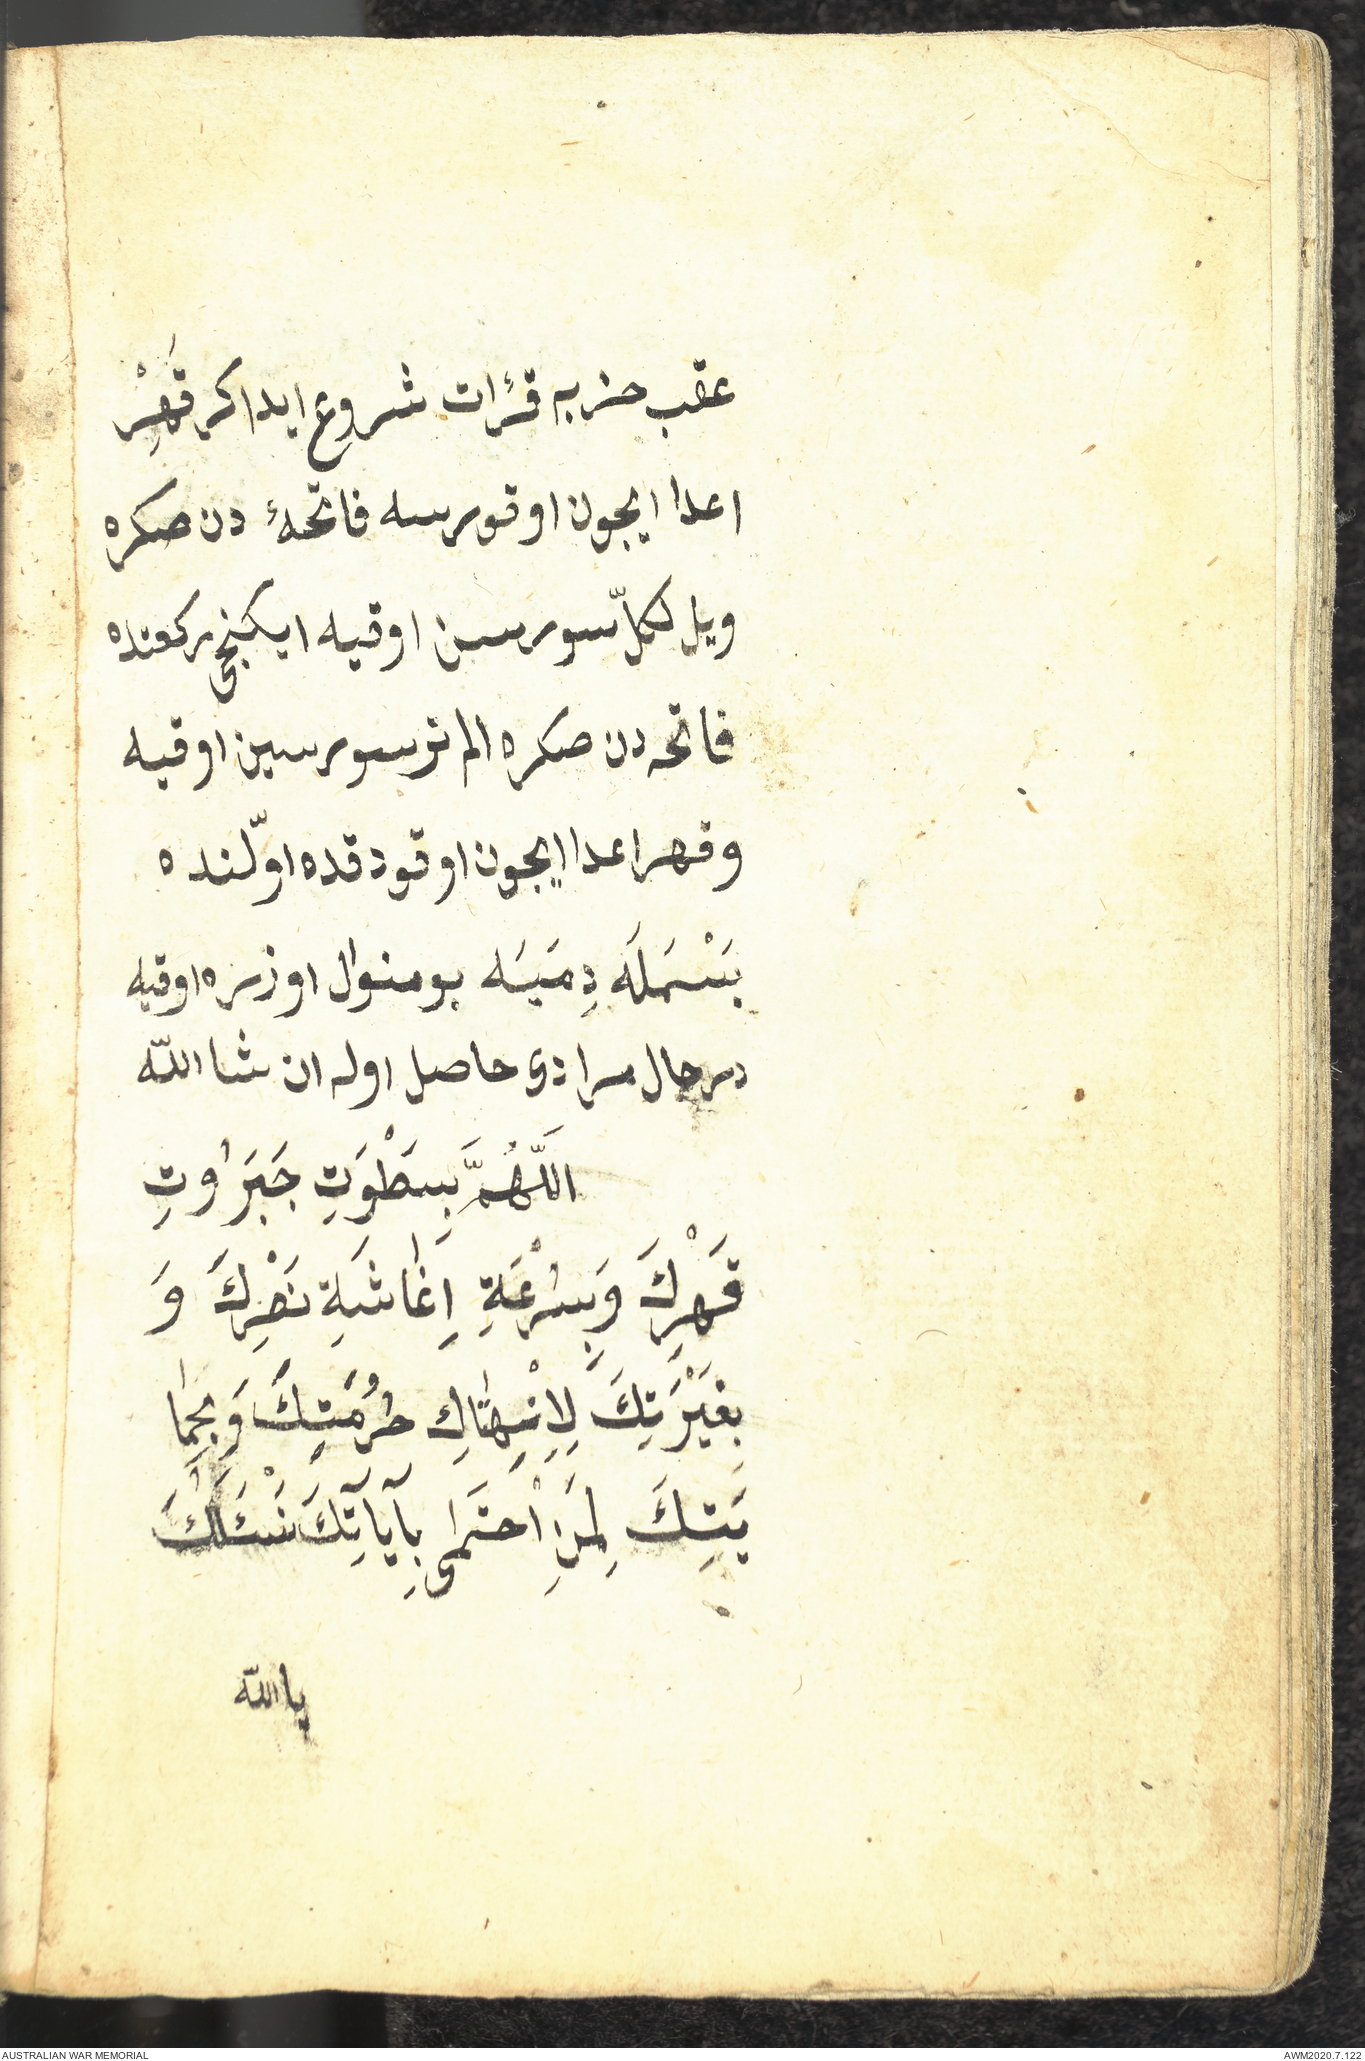 عقب حزبه قرٔات شروع ايدا كر قَهْرِ
اعدا ايچون اوقورسه فاتحهٔ دن صكره
ويل لكلّ سورسن اوقيه ايكنجى ركعتده
فاتحه دن صكره الم تر سورسين اوقيه
وقهر اعدا ايچون اوقودقده اوّلنده
بَسْمَلَه دِمَيَه بو منوال اوزره اوقيه
درحال مرادى حاصل اوله ان شا اللّه
اَللّٰهُمَّ بِسَطْوَتِ جَبَرَاوتِ
قَهْرِكَ وَبِسُرْعَةِ اِغَاثَةِ نَصْرِكَ وَ
بِغَيْرَتِكَ لِاِنْتِهَاكِ حُرُمَتِكَ وَبِحِمَا
يَتِكَ لِمَنِ اْحتَمٰى بِآيآتِكَ نَسْئَلُكَ
يا اللّه
AUSTRALIAN WAR MEMORIAL
AWM2020.7.122